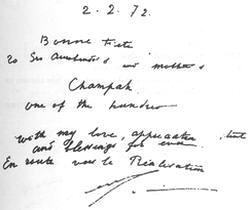 2.2.72.
Bonne fête
to Sri Aurobindo's and mother's
Champak
one of the hundred
With my love, appreciation, trust
and blessings for ever.
En route vers la Réalisation